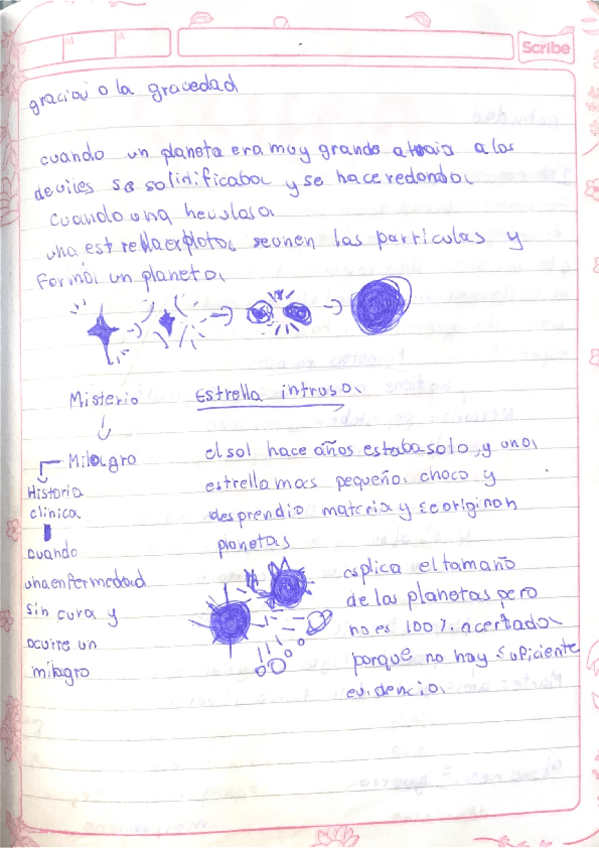 Scribe
gracias a la gravedad
cuando un planeta era muy grande atraia a los
deviles se solidificaba y se hace redonda
cuando una nevulosa
una estrella explota, seunen las particulas y
forma un planeta
Misterio
Milagro
Historia
clinica
cuando
una enfermedad
sin cura y
ocurre un
milagro
Estrella intrusa
el sol hace años estaba solo, y una
estrella mas pequeña choco y
desprendio materia y se originan
planetas
esplica el tamaño
de los planetas pero
no es 100% acertada
porque no hay suficiente
evidencia